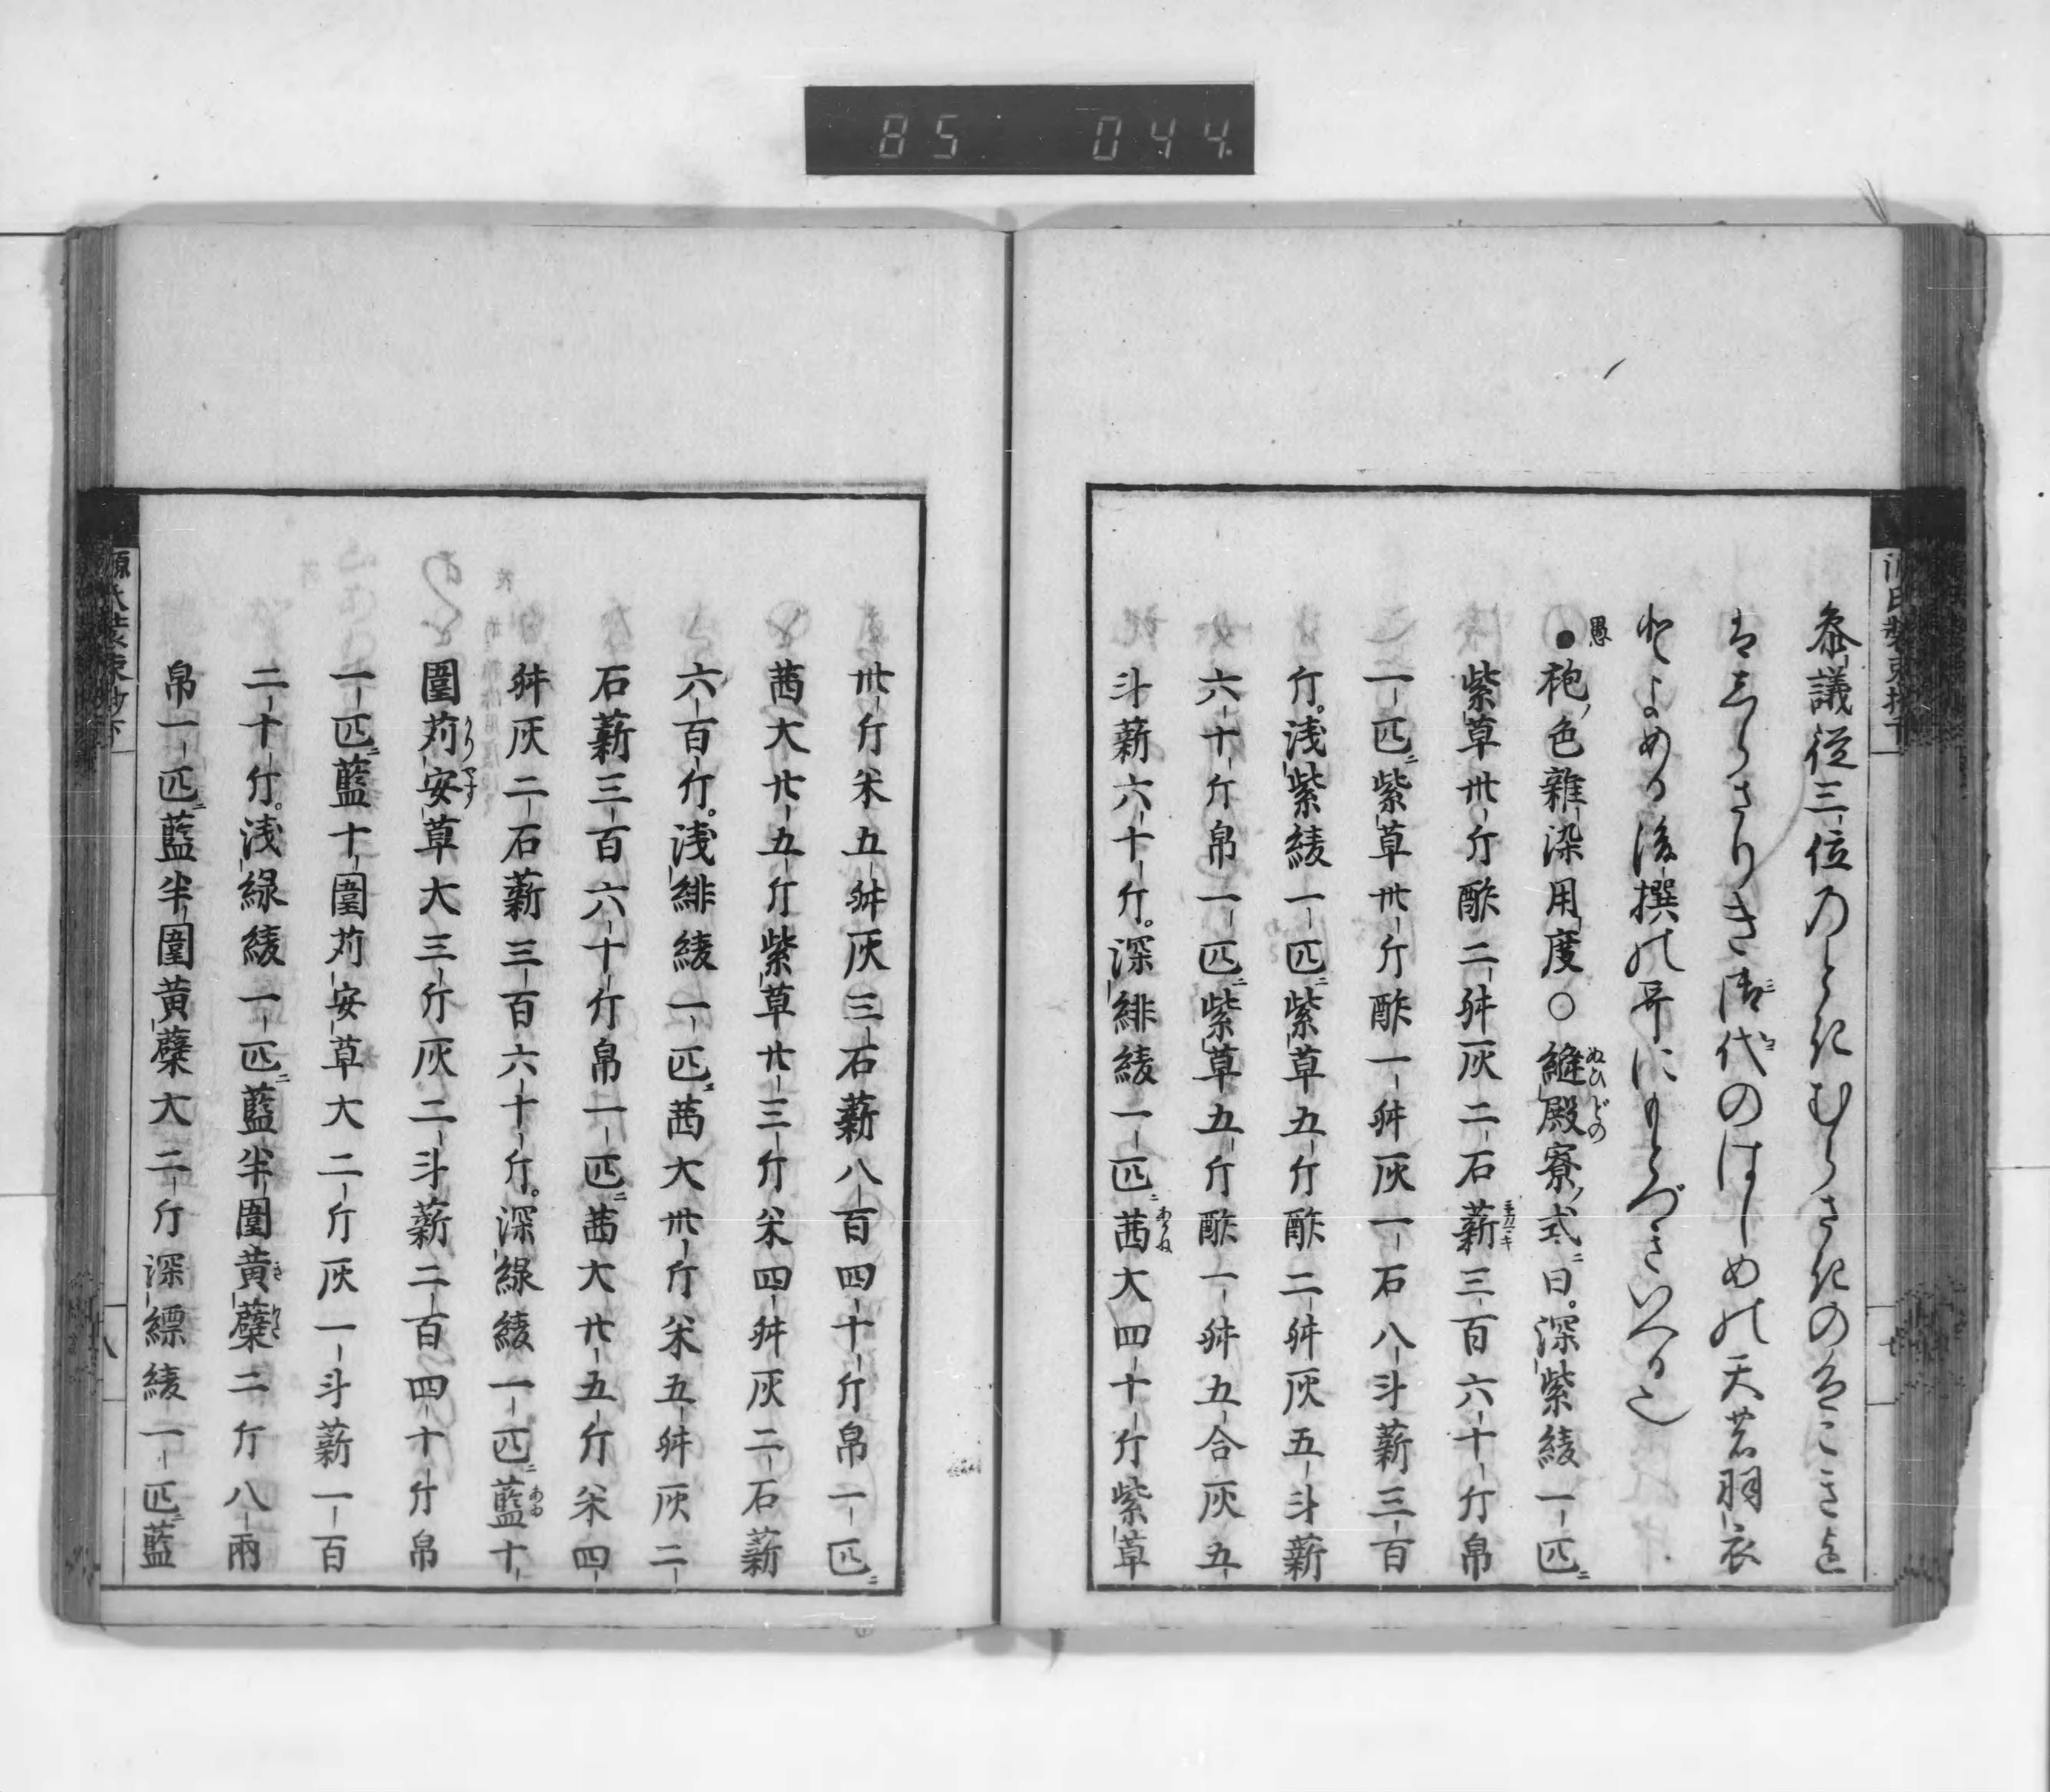 85 044
源氏装束抄下
参議従三位のときむらさきのきこさを
はしらさりき御代のはしめの天の羽衣
とよめる後撰の哥にもとづきいへる也
愚
●袍ノ色雑染用度○縫殿寮ノ式ニ曰。深紫綾一匹ニ
紫草卅斤酢二舛灰二石薪三百六十斤帛
一匹ニ紫草卅斤酢一舛灰一石八斗薪三百
斤。浅紫綾一匹ニ紫草五斤酢二舛灰五斗薪
六十斤帛一匹ニ紫草五斤酢一舛五合灰五
斗薪六十斤。深緋綾一匹ニ茜大四十斤紫草
卅斤米五舛灰三石薪八百四十斤帛一匹ニ
茜大廿五斤紫草廿三斤米四舛灰二石薪
六百斤。浅緋綾一匹ニ茜大卅斤米五舛灰二
石薪三百六十斤帛一匹ニ茜大廿五斤米四
舛灰二石薪三百六十斤。深緑綾一匹ニ藍十
圍苅安草大三斤灰二斗薪二百四十斤帛
一匹ニ藍十圍苅安草大二斤灰一斗薪一百
二十斤。浅緑綾一匹ニ藍半圍黄蘗二斤八兩
帛一匹ニ藍半圍黄蘗大二斤深縹綾一匹ニ藍
源氏装束抄下
八